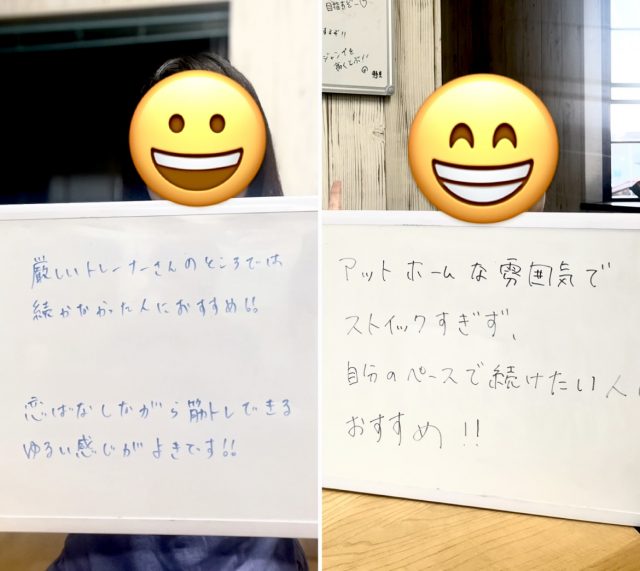 厳しいトレーナーさんのところでは
続かなかった人におすすめ!!
恋ばなしながら筋トレできる
ゆるい感じがよきです!!
ジャンプを
高くとぶ!!
アットホームな雰囲気で
ストイックすぎず、
自分のペースで続けたい人に
おすすめ!!